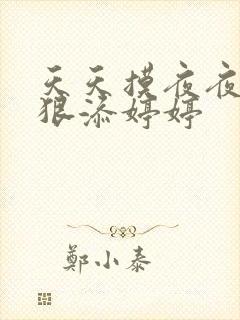 天天摸夜夜
狠添婷婷
鄭小泰